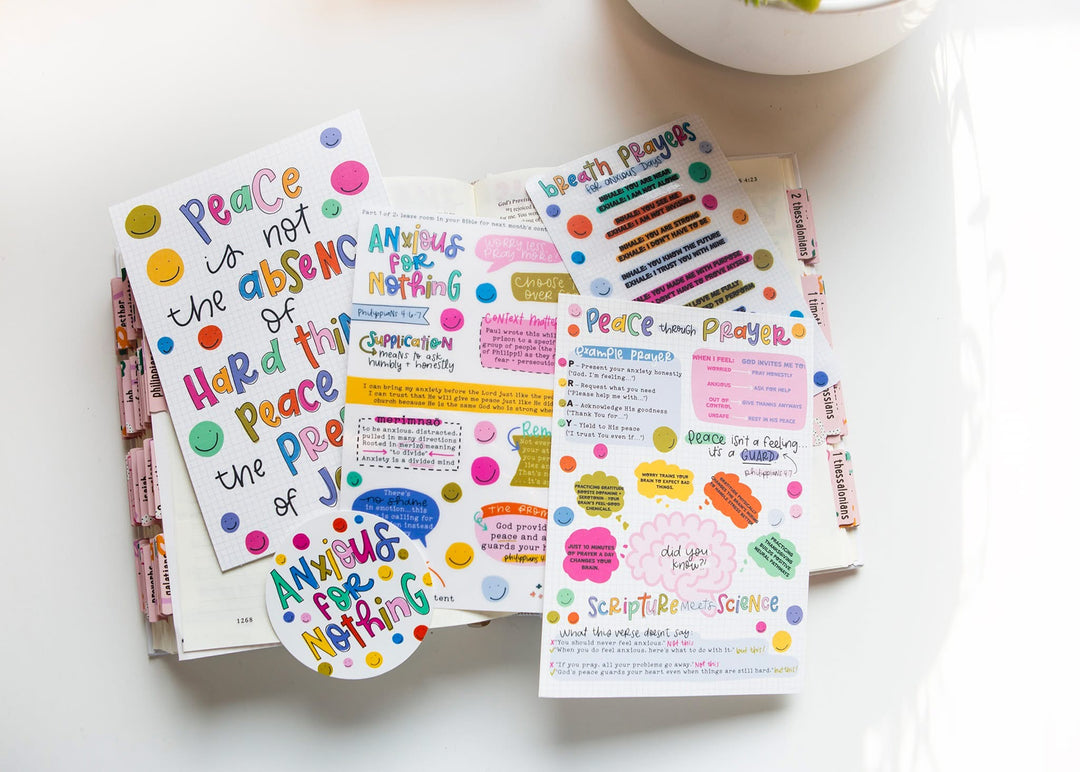 Peace
is not
the absence
of
Hard thin
Peace
the Pres
of Je
breath prayers
for anxious days
INHALE: YOU ARE NEAR
EXHALE: I AM NOT ALONE
INHALE: YOU SEE ME
EXHALE: I AM NOT INVISIBLE
INHALE: YOU ARE STRONG
EXHALE: I DON'T HAVE TO BE
INHALE: YOU KNOW THE FUTURE
EXHALE: I TRUST YOU WITH MINE
INHALE: YOU MADE ME WITH PURPOSE
EXHALE: I DON'T HAVE TO PROVE MYSELF
LOVE ME FULLY
TO PERFORM
Part 1 of 2: leave room in your Bible for next month's cont
Anxious
for
Nothing
worry less
pray more!
Choose
over
Philippians 4:6-7
Supplication
means to ask
humbly + honestly
context matter
Paul wrote this whil
prison to a specific
group of people (the
of Philippi) as they f
fear + persecution
I can bring my anxiety before the Lord just like the peo
I can trust that He will give me peace just like He did
church because He is the same God who is strong when
merimnao
to be anxious, distracted,
pulled in many directions
Rooted in merizo meaning
"to divide"
Anxiety is a divided mind
Rem
Not ever
There's
no shame
in emotion...this
is calling for
instead
the prom
God provid
peace and
guards your h
philippians 4
tent
Anxious
for
Nothing
Peace through Prayer
example prayer
P - Present your anxiety honestly
("God, I'm feeling...")
R - Request what you need
("Please help me with...")
A - Acknowledge His goodness
("Thank You for...")
Y - Yield to His peace
("I trust You even if...")
WHEN I FEEL: GOD INVITES ME TO:
WORRIED PRAY HONESTLY
ANXIOUS ASK FOR HELP
OUT OF
CONTROL GIVE THANKS ANYWAYS
UNSAFE REST IN HIS PEACE
Peace isn't a feeling...
it's a GUARD
philippians 4:7
PRACTICING GRATITUDE
BOOSTS DOPAMINE +
SEROTONIN - YOUR
BRAIN'S FEEL-GOOD
CHEMICALS.
WORRY TRAINS YOUR
BRAIN TO EXPECT BAD
THINGS.
JUST 10 MINUTES
OF PRAYER A DAY
CHANGES YOUR
BRAIN.
did you
know?!
PRACTICING
THANKSGIVING
BUILDS POSITIVE
NEURAL PATHWAYS
Scripture meets Science
What this verse doesn't say:
x "You should never feel anxious." Not this
✓ "When you do feel anxious, here's what to do with it." but this!
x "If you pray, all your problems go away." Not this
✓ "God's peace guards your heart even when things are still hard." but this!
4:23
1268
2 thessalonians
1 tim
1 thessalonians
proverbs
galatian